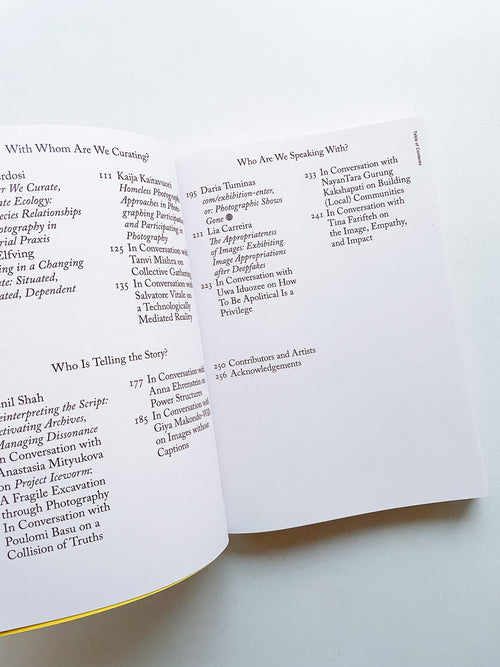 With Whom Are We Curating?
We Curate,
Ecology:
Relationships
in
Praxis
Elfving
in a Changing
Situated,
Dependent
111 Kaija Kaitavuori
Homeless Photograph
Approaches in
graphing
and Participating in
Photography
125 In Conversation with
Tanvi Mishra on
Collective Gathering
135 In Conversation with
Salvatore Vitale on
a Technologically
Mediated Reality
Who Is Telling the Story?
Shah
the Script:
Archives,
Managing Dissonance
In Conversation with
Anastasia Mityukova
on Project Iceworm:
A Fragile Excavation
through Photography
In Conversation with
Poulomi Basu on a
Collision of Truths
177 In Conversation with
Anna Ehrenstein on
Power Structures
185 In Conversation with
Giya
on Images without
Captions
Table of Contents
Who Are We Speaking With?
195 Daria Tuminas
com/exhibition-enter,
or: Photographic Shows
Gone
211 Lia Carreira
The Appropriateness
of Images: Exhibiting
Image Appropriations
after Deepfakes
223 In Conversation with
Uwa Iduozee on How
To Be Apolitical Is a
Privilege
233 In Conversation with
NayanTara Gurung
Kakshapati on Building
(Local) Communities
241 In Conversation with
Tina Farifteh on
the Image, Empathy,
and Impact
250 Contributors and Artists
256 Acknowledgements